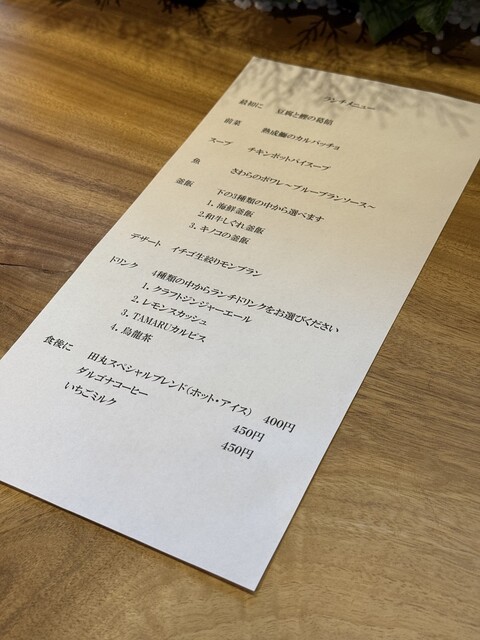 ランチメニュー
最初に 豆腐と鰹の最韻
前菜 熟成鰤のカルパッチョ
スープ チキンポットパイスープ
魚 さわらのポワレ〜ブルーブランソース〜
釜飯 下の3種類の中から選べます
1. 海鮮釜飯
2.和牛しぐれ釜飯
3. キノコの釜飯
デザート イチゴ生絞りモンブラン
ドリンク 4種類の中からランチドリンクをお選びください
1. クラフトジンジャーエール
2. レモンスカッシュ
3. TAMARUカルピス
4. 烏龍茶
食後に 田丸スペシャルブレンド（ホット・アイス） 400円
ダルゴナコーヒー 450円
いちごミルク 450円